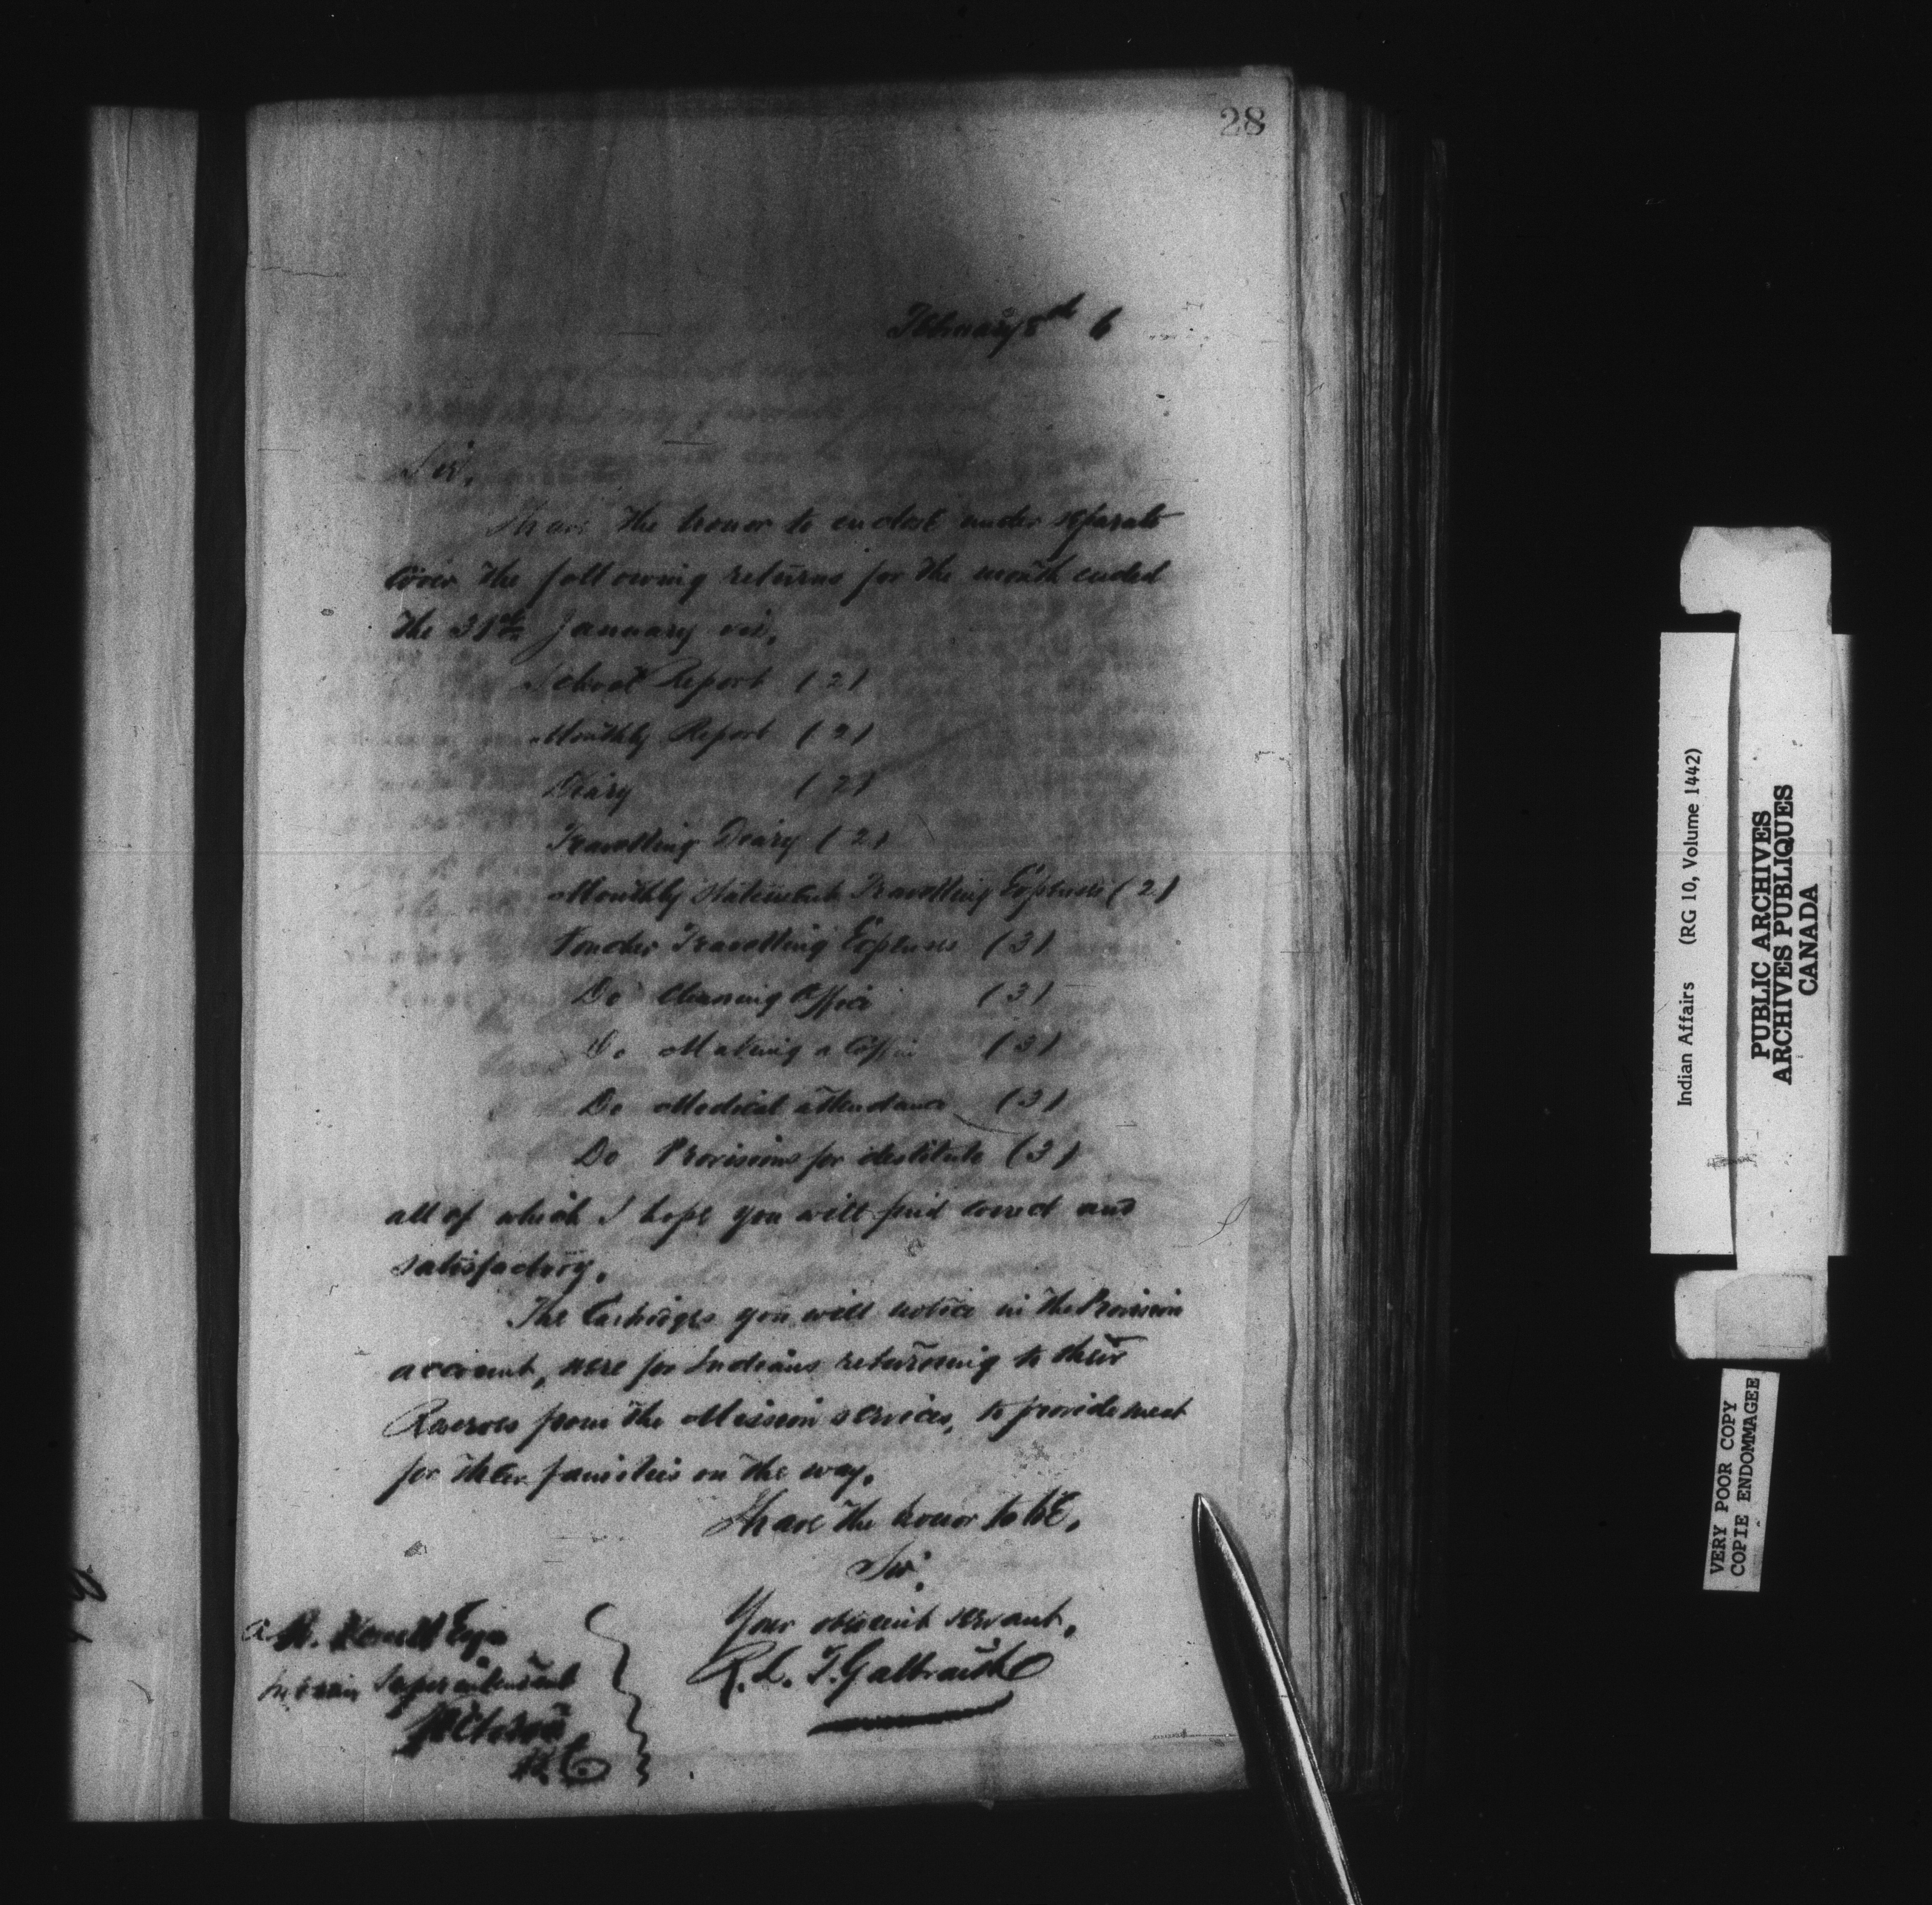 28
February 8th 6
Sir,
I have the honor to enclose under separate
cover the following returns for the month ended
the 31st January viz,
School Report (2)
Monthly Report (2)
Diary (2)
Travelling Diary (2)
Monthly Statement Travelling Expenses (2)
Voucher Travelling Expenses (3)
Do Cleaning Office (3)
Do Making a Coffin (3)
Do Medical attendance (3)
Do Provisions for destitute (3)
all of which I hope you will find correct and
satisfactory.
The Cartridges you will notice in the Provision
account, were for Indians returning to their
Reserves from the Mission services, to provide meat
for their families on the way.
I have the honor to be,
Sir,
Your obedient servant,
R. L. T. Galbraith
A. W. Vowell Esqr
Indian Superintendent
Victoria
B.C.
Indian Affairs (RG 10, Volume 1442)
PUBLIC ARCHIVES
ARCHIVES PUBLIQUES
CANADA
VERY POOR COPY
COPIE ENDOMMAGEE